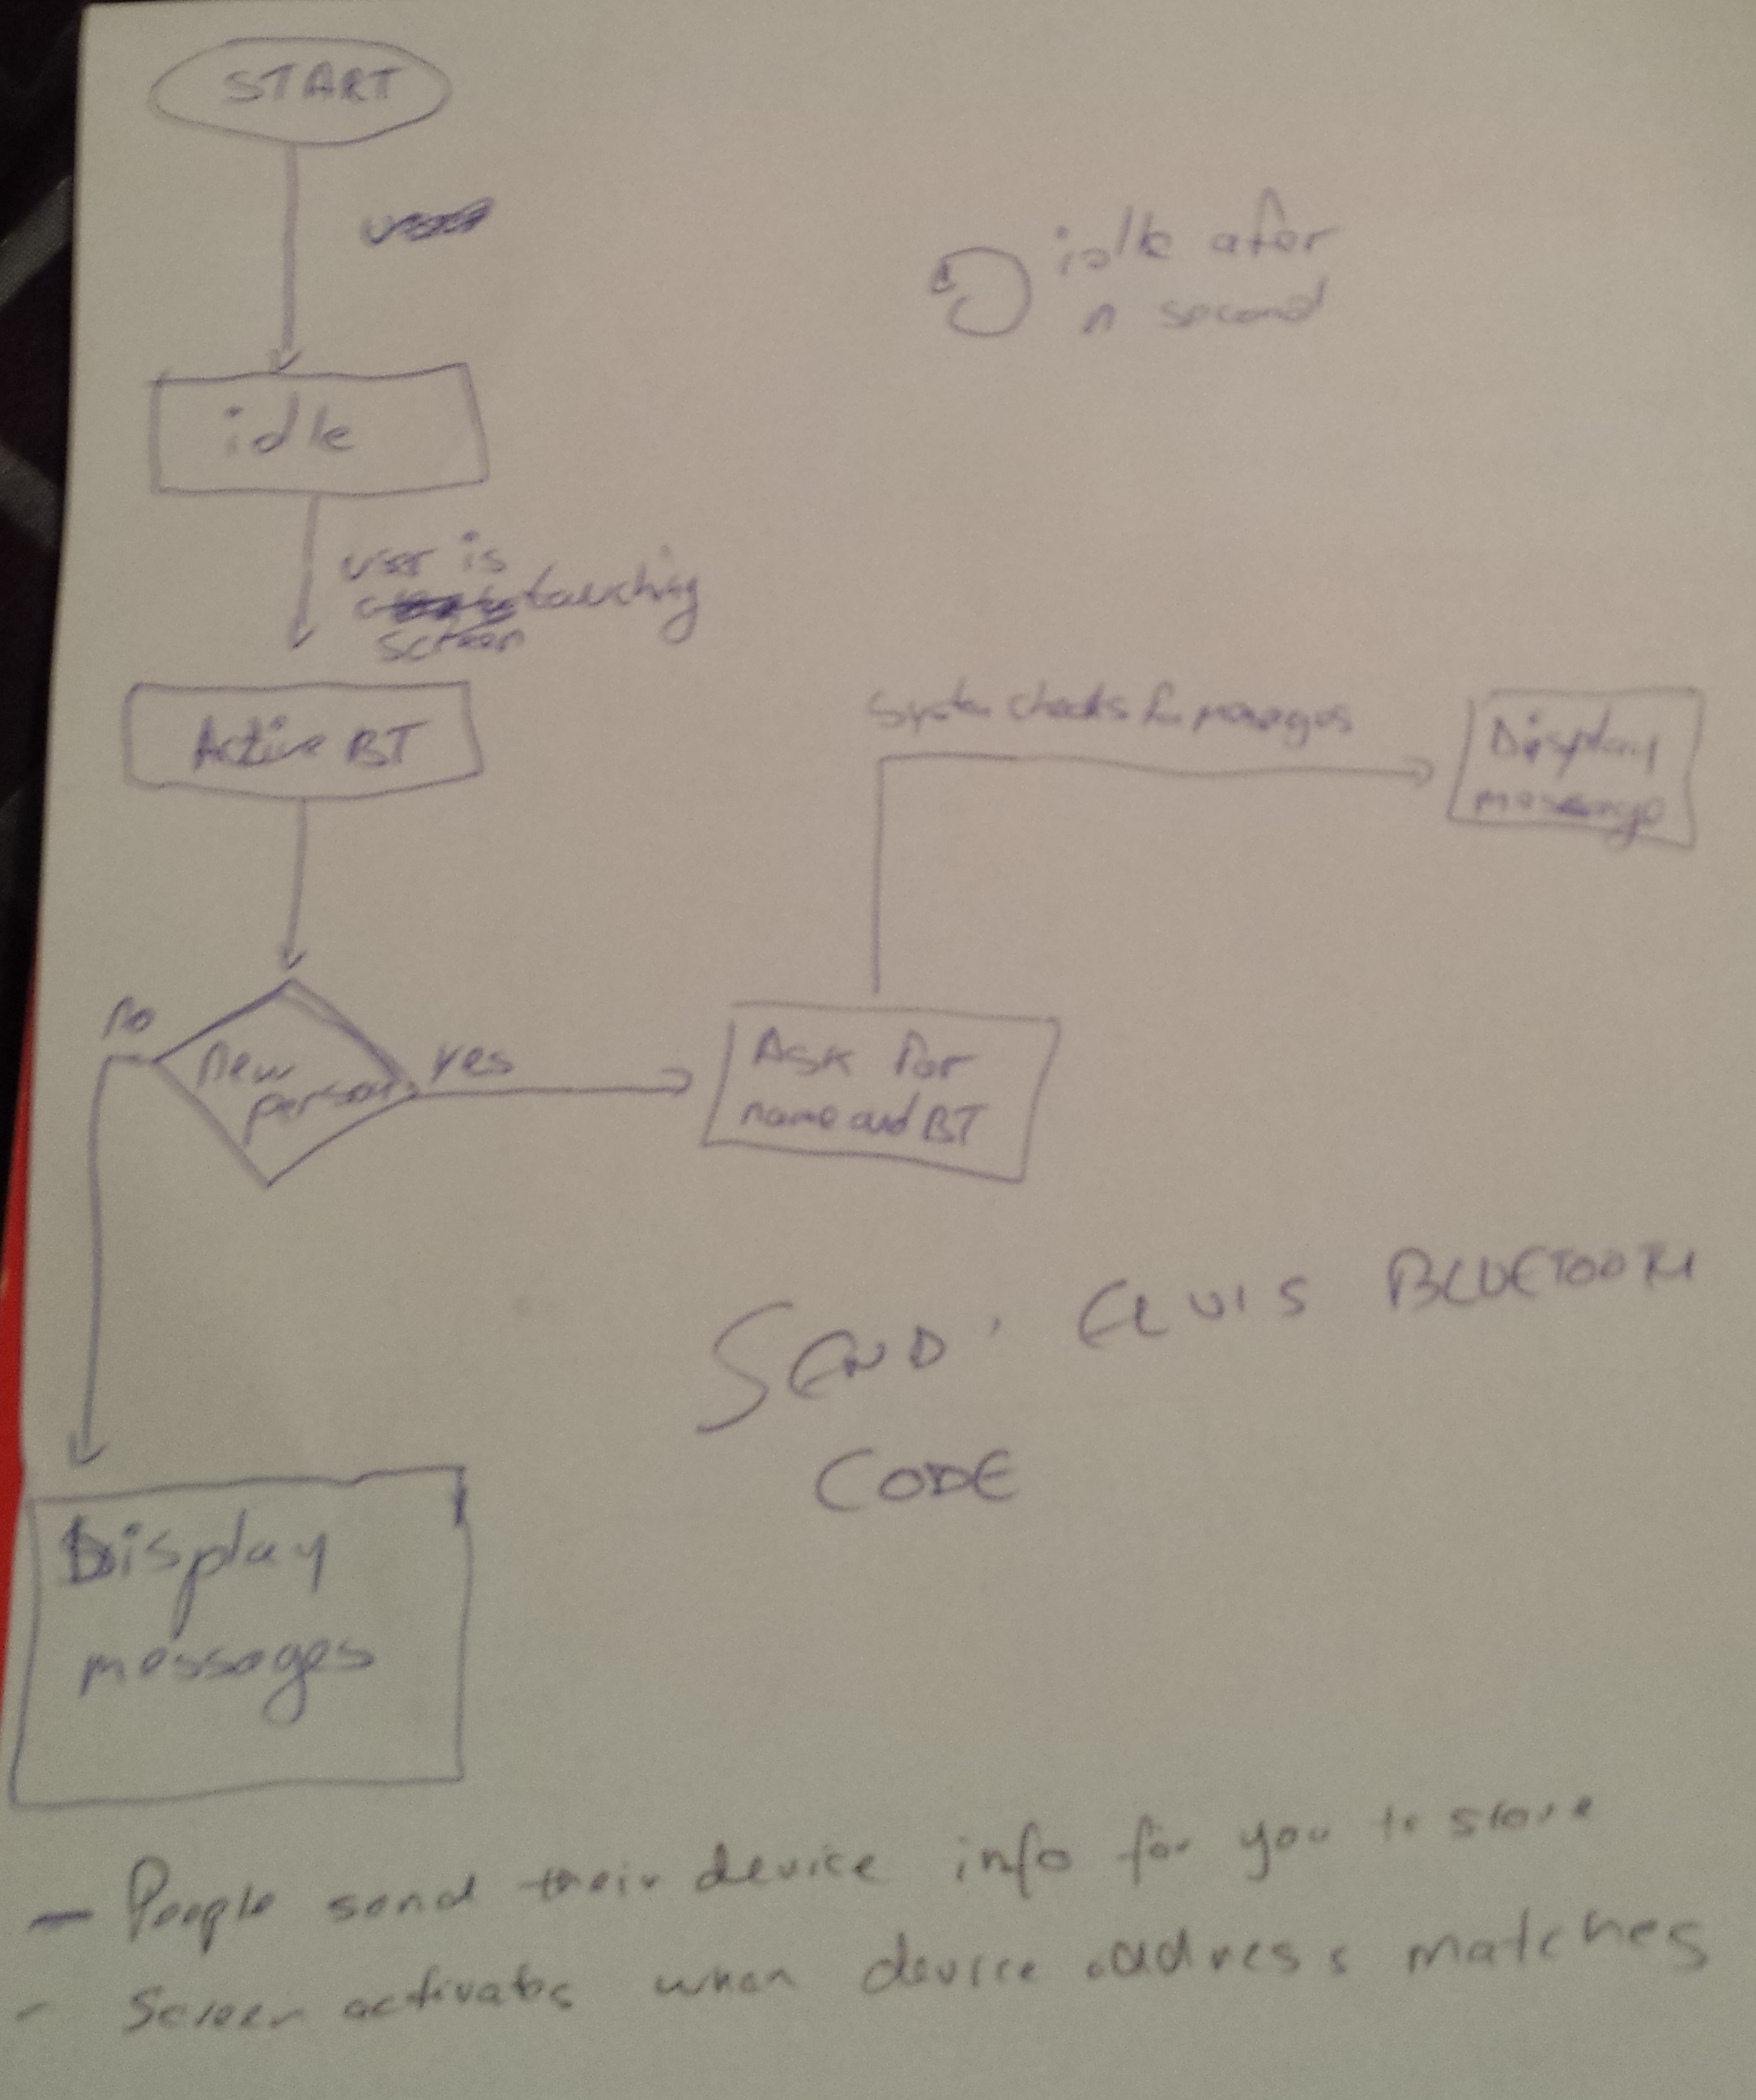 START
idle afer
n second
idle
user is
touching
screen
System checks for messages
Active BT
Display
message
no
new
person
yes
Ask for
name and BT
SEND ELVIS BLUETOOTH
CODE
Display
messages
- People send their device info for you to store
- Screen activates when device address matches